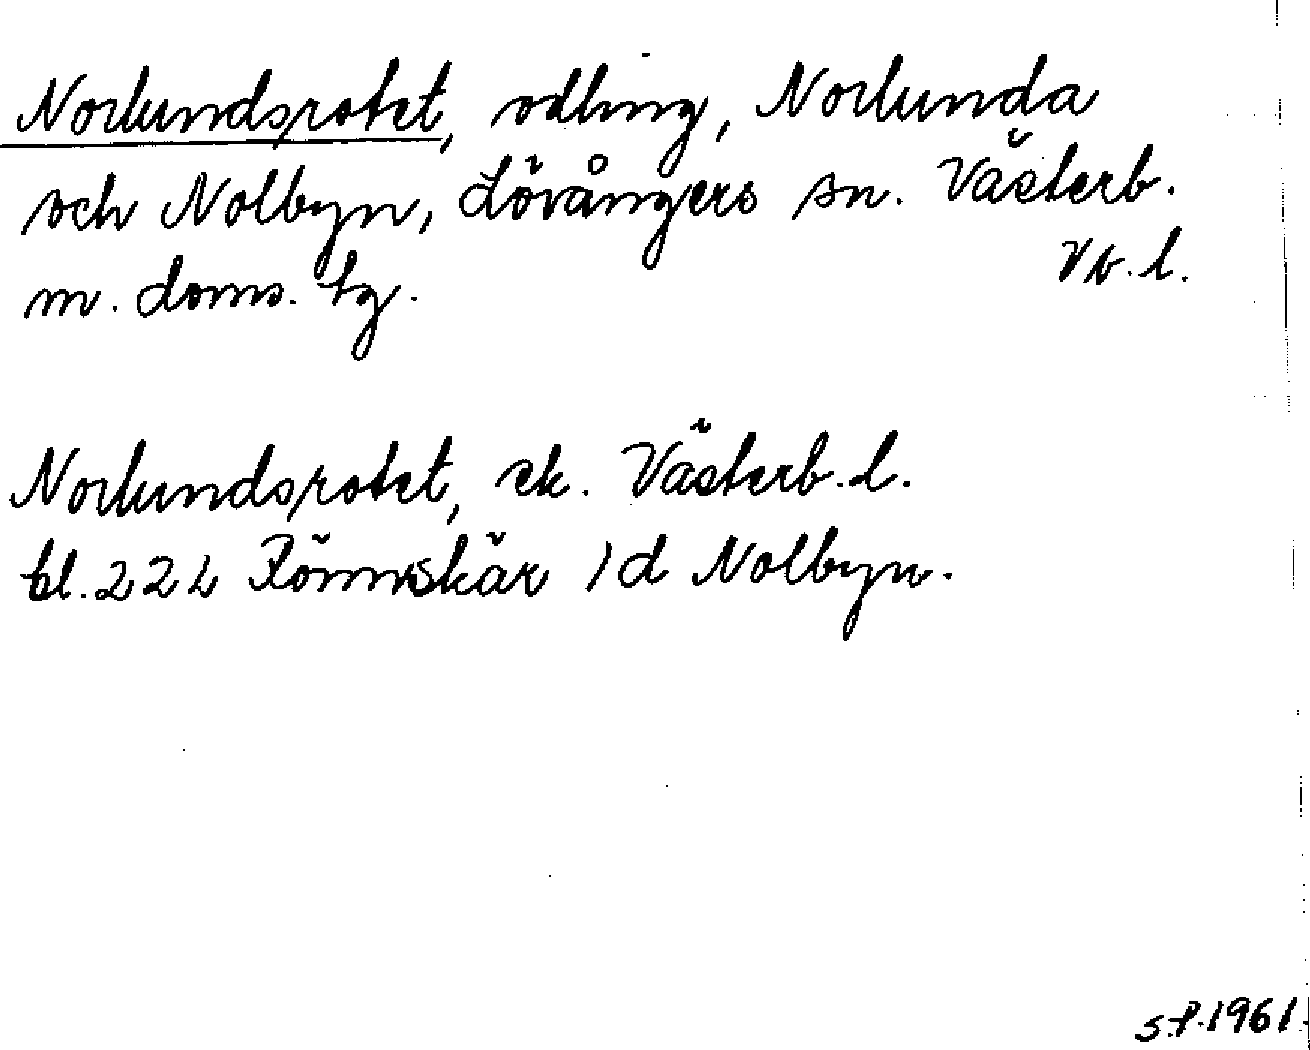 Norlundsrotet, odling, Norlunda
och Nolbyn, Lövångers sn. Västerb.
m. doms. tg. Vb. l.
Norlundsrotet, ek. Västerb. l.
bl. 22 L Rönnskär 1 d Nolbyn.
S.P. 1961.